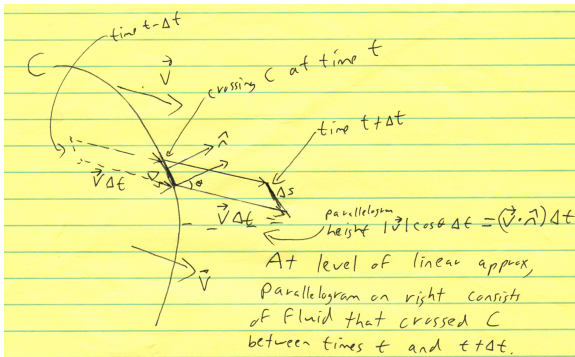 time t-Δt
C
V⃗
crossing C at time t
time t+Δt
n̂
V⃗Δt
θ
Δs
V⃗Δt
parallelogram
height |V⃗|cosθ Δt = (V⃗·n̂)Δt
V⃗
At level of linear approx,
parallelogram on right consists
of fluid that crossed C
between times t and t+Δt.